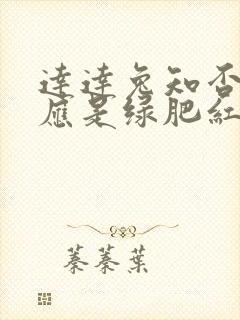 達達兔知否
應是绿肥紅
蓁蓁葉